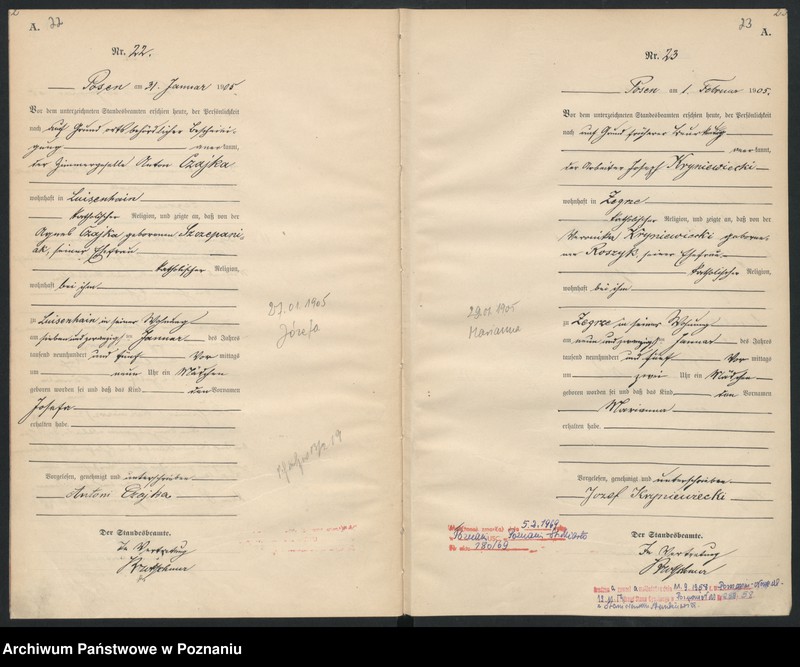 A. 22
Nr. 22.
Posen am 31. Januar 1905
Vor dem unterzeichneten Standesbeamten erschien heute, der Persönlichkeit
nach auf Grund ortsbehördlicher Beschei-
gung anerkannt,
der Zimmergeselle Anton Czajka
wohnhaft in Luisenhain
katholischer Religion, und zeigte an, daß von der
Agnes Czajka geborenen Szczepani-
ak, seiner Ehefrau
katholischer Religion,
wohnhaft bei ihm
zu Luisenhain in seiner Wohnung
am siebenundzwanzigsten Januar des Jahres
tausend neunhundert und fünf Vor mittags
um neun Uhr ein Mädchen
geboren worden sei und daß das Kind den Vornamen
Josefa
erhalten habe.
Vorgelesen, genehmigt und unterschrieben
Antoni Czajka
Der Standesbeamte.
In Vertretung
27.01.1905
Józefa
23 A.
Nr. 23
Posen am 1. Februar 1905.
Vor dem unterzeichneten Standesbeamten erschien heute, der Persönlichkeit
nach auf Grund früherer
anerkannt,
der Arbeiter Joseph Kryniewiecki
wohnhaft in Zegrze
katholischer Religion, und zeigte an, daß von der
Veronika Kryniewiecki gebore-
nen Roszyk, seiner Ehefrau
katholischer Religion,
wohnhaft bei ihm
zu Zegrze in seiner Wohnung
am neunundzwanzigsten Januar des Jahres
tausend neunhundert und fünf Vor mittags
um zwei Uhr ein Mädchen
geboren worden sei und daß das Kind den Vornamen
Marianna
erhalten habe.
Vorgelesen, genehmigt und unterschrieben
Jozef Kryniewiecki
Der Standesbeamte.
In Vertretung
29.01.1905
Marianna
5.2.1969
Poznań
Nr aktu 280/69
Archiwum Państwowe w Poznaniu